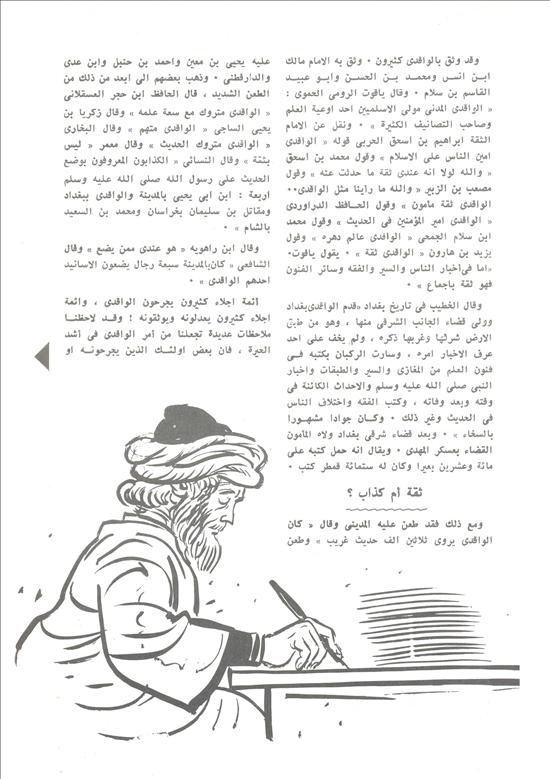 وقد وثق بالواقدى كثيرون ٠ وثق به الامام مالك
ابن انس ومحمد بن الحسن وابو عبيد
القاسم بن سلام ٠ وقال ياقوت الرومى الحموى :
« الواقدى المدنى مولى الاسلميين احد اوعية العلم
وصاحب التصانيف الكثيرة » ٠ ونقل عن الامام
الثقة ابراهيم بن اسحق الحربى قوله « الواقدى
امين الناس على الاسلام » وقال محمد بن اسحق
« والله لولا انه عندى ثقة ما حدثت عنه » وقول
مصعب بن الزبير « والله ما راينا مثل الواقدى٠٠
الواقدى ثقة مأمون » وقول الحافظ الدراوردى
« الواقدى امير المؤمنين فى الحديث » وقول محمد
ابن سلام الجمحى « الواقدى عالم دهره » وقول
يزيد بن هارون « الواقدى ثقة » ٠ يقول ياقوت٠
«اما فى اخبار الناس والسير والفقه وسائر الفنون
فهو ثقة باجماع »٠
وقال الخطيب فى تاريخ بغداد «قدم الواقدى بغداد
وولى قضاء الجانب الشرقى منها ، وهو من طبق
الارض شرقها وغربها ذكره ، ولم يخف على احد
عرف الاخبار امره ، وسارت الركبان بكتبه فى
فنون العلم من المغازى والسير والطبقات واخبار
النبى صلى الله عليه وسلم والاحداث الكائنة فى
وقته وبعد وفاته ، وكتب الفقه واختلاف الناس
فى الحديث وغير ذلك ٠ وكان جوادا مشهورا
بالسخاء » ٠ وبعد قضاء شرقى بغداد ولاه المأمون
القضاء بعسكر المهدى ٠ ويقال انه حمل كتبه على
مائة وعشرين بعيرا وكان له ستمائة قمطر كتب ٠
ثقة أم كذاب ؟
ومع ذلك فقد طعن عليه المدينى وقال « كان
الواقدى يروى ثلاثين الف حديث غريب » وطعن
عليه يحيى بن معين واحمد بن حنبل وابن عدى
والدارقطنى ٠ وذهب بعضهم الى ابعد من ذلك من
الطعن الشديد ، قال الحافظ ابن حجر العسقلانى
« الواقدى متروك مع سعة علمه » وقال زكريا بن
يحيى الساجى « الواقدى متهم » وقال البخارى
« الواقدى متروك الحديث » وقال معمر « ليس
بثقة » وقال النسائى « الكذابون المعروفون بوضع
الحديث على رسول الله صلى الله عليه وسلم
اربعة : ابن ابى يحيى بالمدينة والواقدى ببغداد
ومقاتل بن سليمان بخراسان ومحمد بن السعيد
بالشام » ٠
وقال ابن راهويه « هو عندى ممن يضع » وقال
الشافعى « كان بالمدينة سبعة رجال يضعون الاسانيد
احدهم الواقدى » ٠
ائمة اجلاء كثيرون يجرحون الواقدى ، وائمة
اجلاء كثيرون يعدلونه ويوثقونه ! وقد لاحظنا
ملاحظات عديدة تجعلنا من أمر الواقدى فى أشد
الحيرة ، فان بعض اولئك الذين يجرحونه او